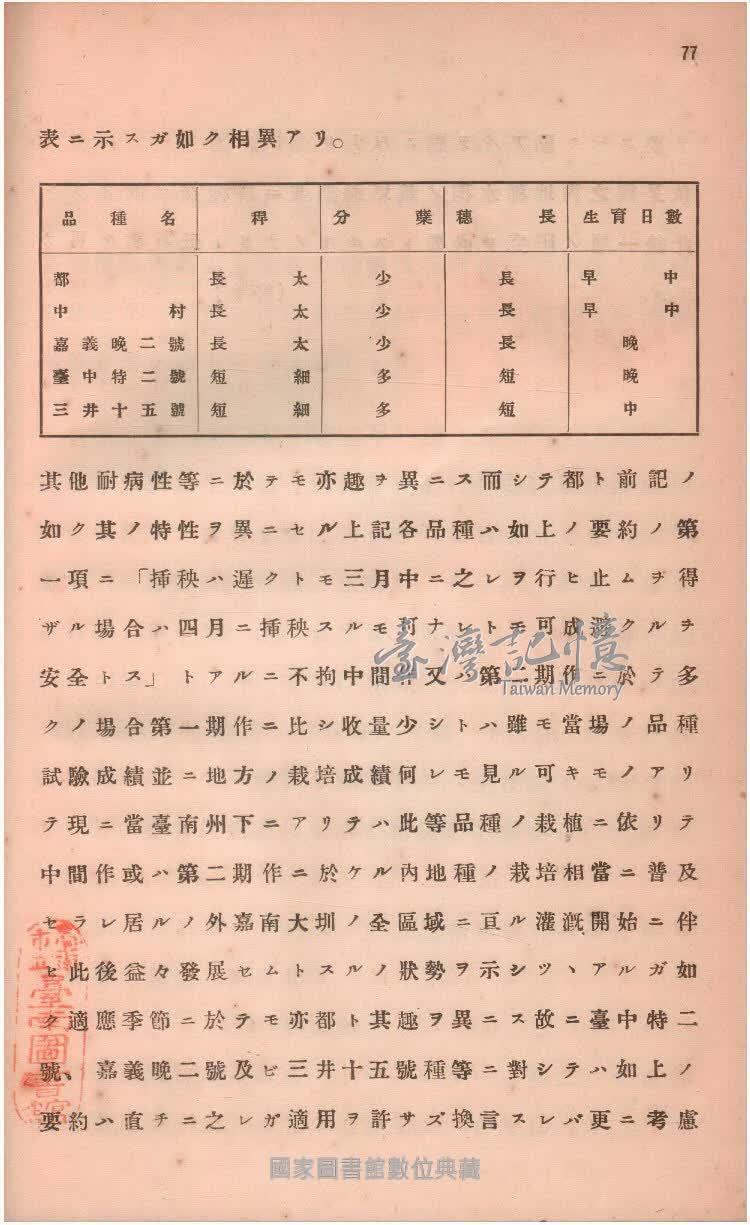 77
表ニ示スガ如ク相異アリ。
品種名 稈 分蘖 穗長 生育日數
都 長太 少 長 早中
中村 長太 少 長 早中
嘉義晚二號 長太 少 長 晚
臺中特二號 短細 多 短 晚
三井十五號 短細 多 短 中
其他耐病性等ニ於テモ亦趣ヲ異ニス而シテ都ト前記ノ
如ク其ノ特性ヲ異ニセル上記各品種ハ如上ノ要約ノ第
一項ニ「挿秧ハ遲クトモ三月中ニ之レヲ行ヒ止ムヲ得
ザル場合ハ四月ニ挿秧スルモ可ナレトモ可成避クルヲ
安全トス」トアルニ不拘中間作又ハ第二期作ニ於テ多
クノ場合第一期作ニ比シ收量少シトハ雖モ當場ノ品種
試驗成績並ニ地方ノ栽培成績何レモ見ル可キモノアリ
テ現ニ當臺南州下ニアリテハ此等品種ノ栽植ニ依リテ
中間作或ハ第二期作ニ於ケル內地種ノ栽培相當ニ普及
セラレ居ルノ外嘉南大圳ノ全區域ニ亘ル灌漑開始ニ伴
ヒ此後益々發展セムトスルノ狀勢ヲ示シツヽアルガ如
ク適應季節ニ於テモ亦都ト其趣ヲ異ニス故ニ臺中特二
號、嘉義晚二號及ビ三井十五號種等ニ對シテハ如上ノ
要約ハ直チニ之レガ適用ヲ許サズ換言スレバ更ニ考慮
臺灣記憶
Taiwan Memory
國家圖書館數位典藏